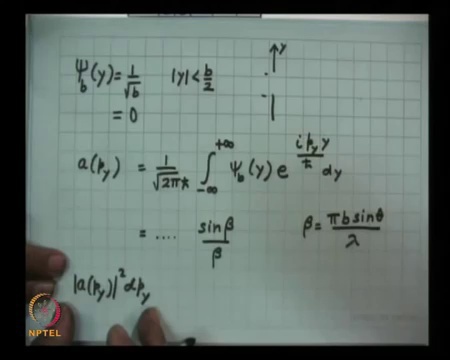 ψ_b(y) = 1/√b |y| < b/2
= 0
y
a(p_y) = 1/√(2πħ) ∫_{-∞}^{+∞} ψ_b(y) e^{i p_y y/ħ} dy
= .... sin β/β β = πb sin θ/λ
|a(p_y)|² dp_y
NPTEL